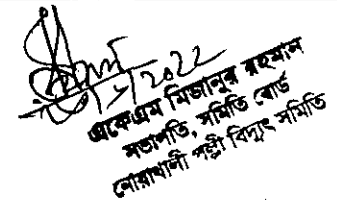 ২০২২
একেএম মিজানুর রহমান
সভাপতি, সমিতি বোর্ড
নোয়াখালী পল্লী বিদ্যুৎ সমিতি